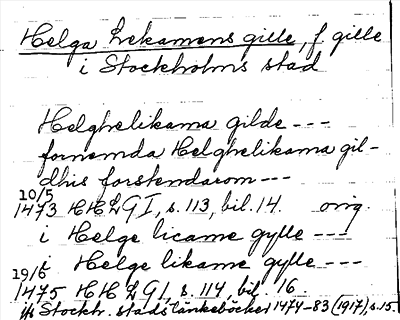 Helga Lekamens gille, f. gille
i Stockholms stad
Helghelikama gilde ---
fornemda Helghelikama gil-
dhis forstendarom ---
10/5
1473 HHLGI, s. 113, bil. 14. orig.
i Helge licame gylle ---
i Helge likame gylle ---
19/6
1475 HHLGI, s. 114, bil. 16.
Stockh. stads tänkeböcker 1474-83 (1917), s. 15.